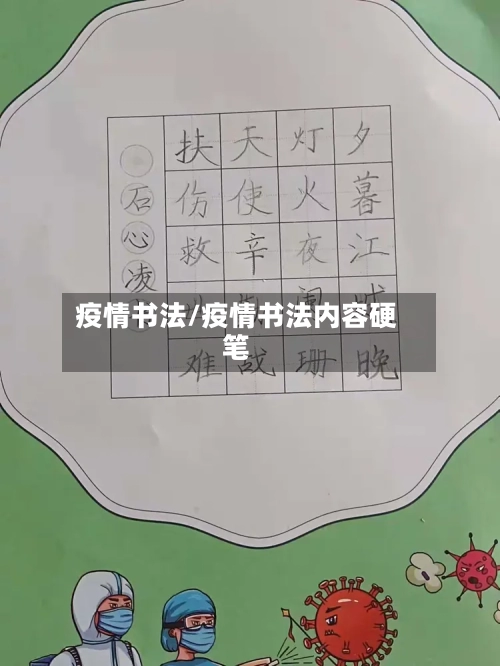 夕暮江晚
灯火夜珊
天使辛战
扶伤救难
石心凌
疫情书法/疫情书法内容硬
笔